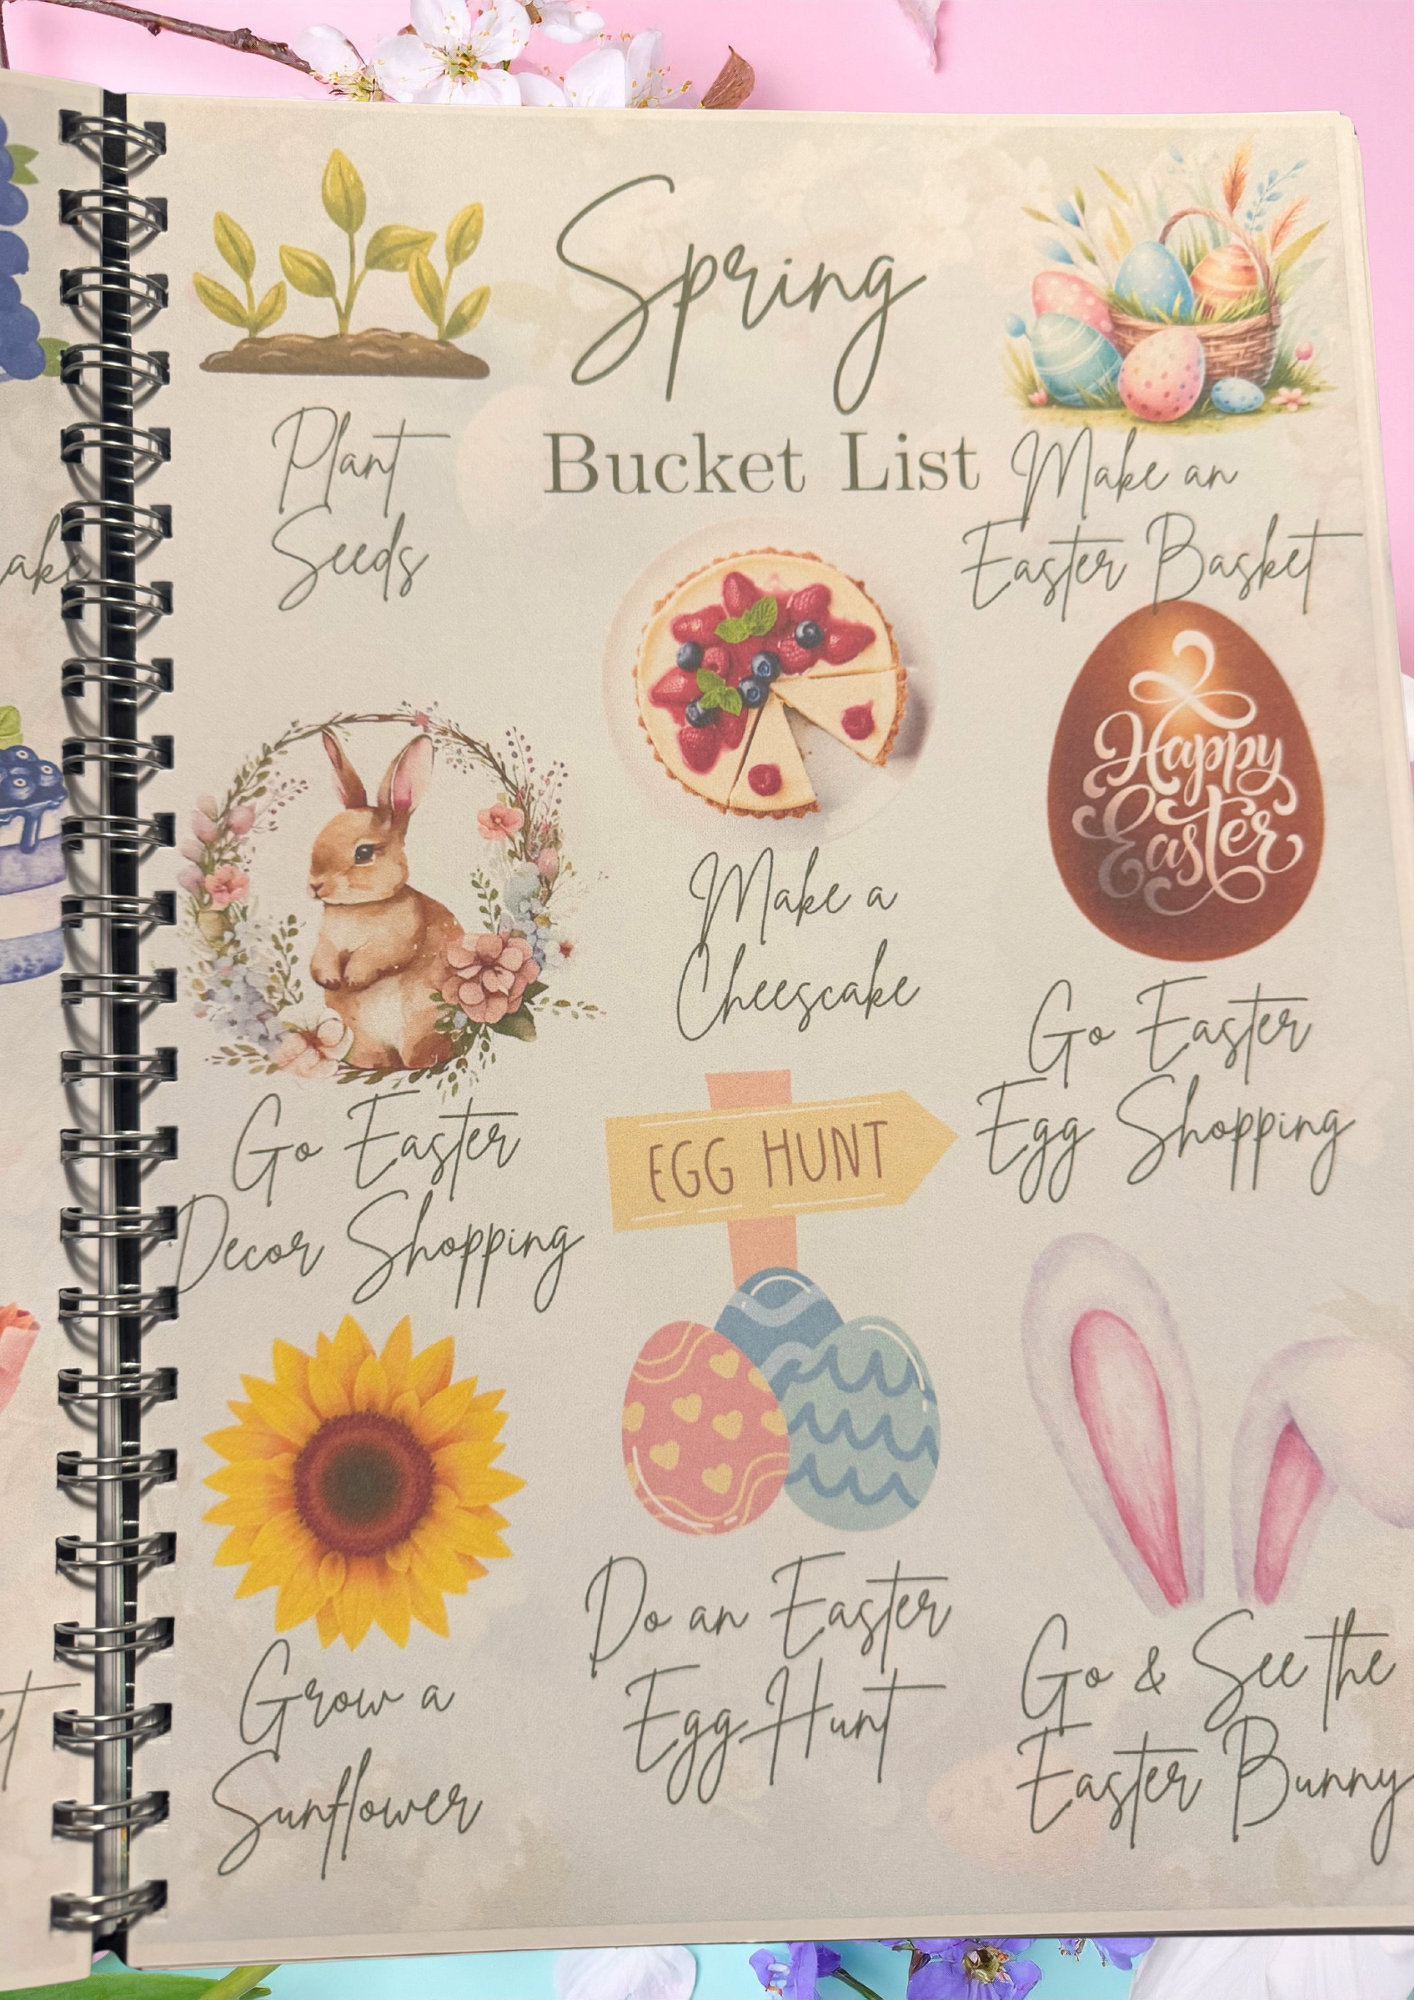 Spring
Bucket List
Plant
Seeds
Make an
Easter Basket
Make a
Cheescake
Happy
Easter
Go Easter
Egg Shopping
Go Easter
Decor Shopping
EGG HUNT
Grow a
Sunflower
Do an Easter
Egg Hunt
Go & See the
Easter Bunny